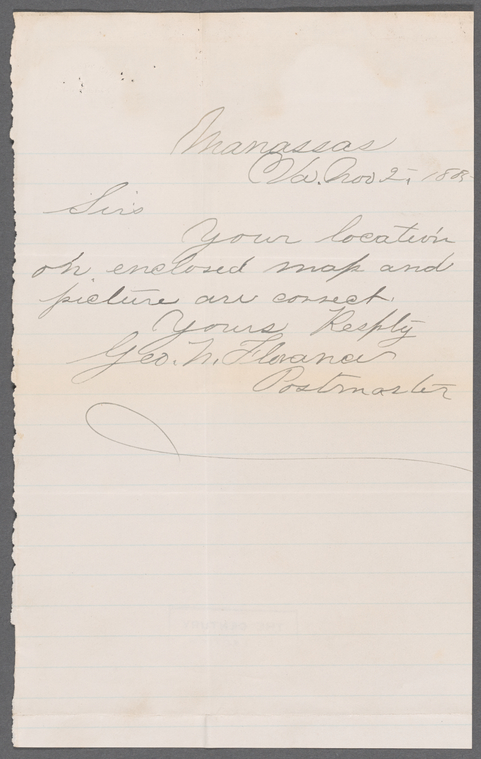 Manassas
Va. Nov 2, 188
Sirs
Your location
on enclosed map and
picture are correct.
Yours Resply
Geo. W. Florance
Postmaster